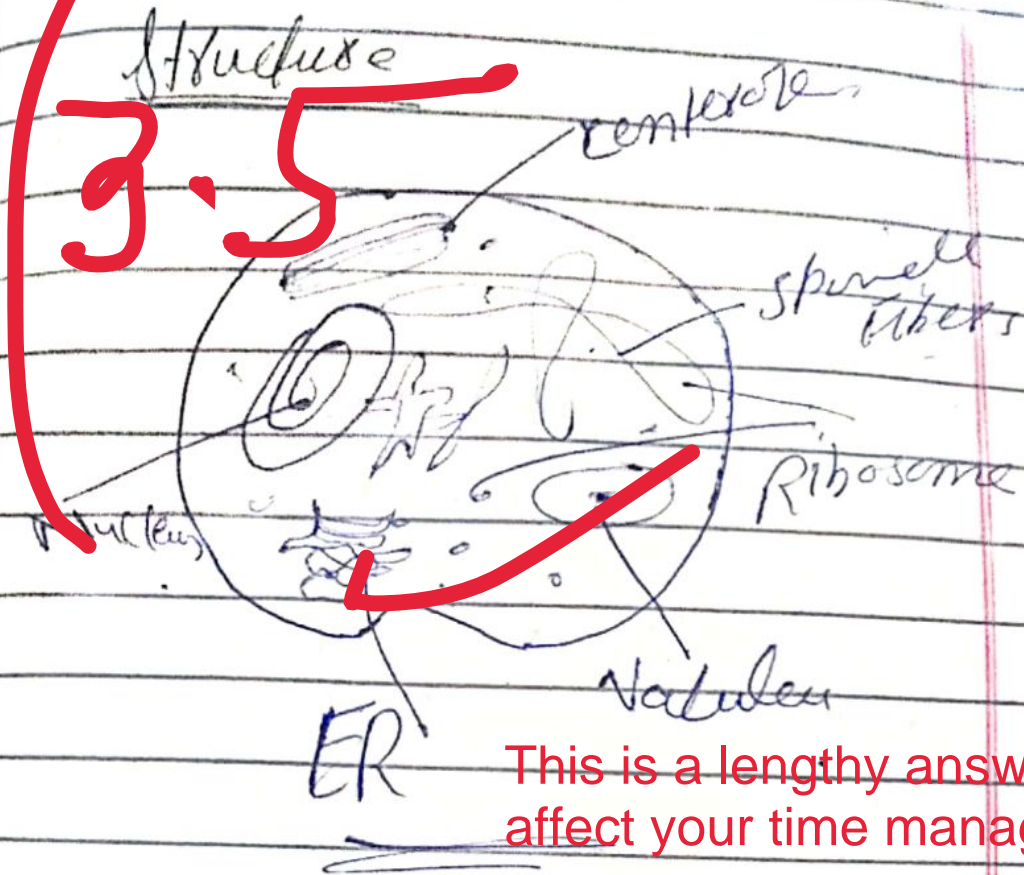 Structure
3.5
centerole
spinell
fibers
Ribosome
Nucleus
Vaculeu
ER
This is a lengthy answ
affect your time manag